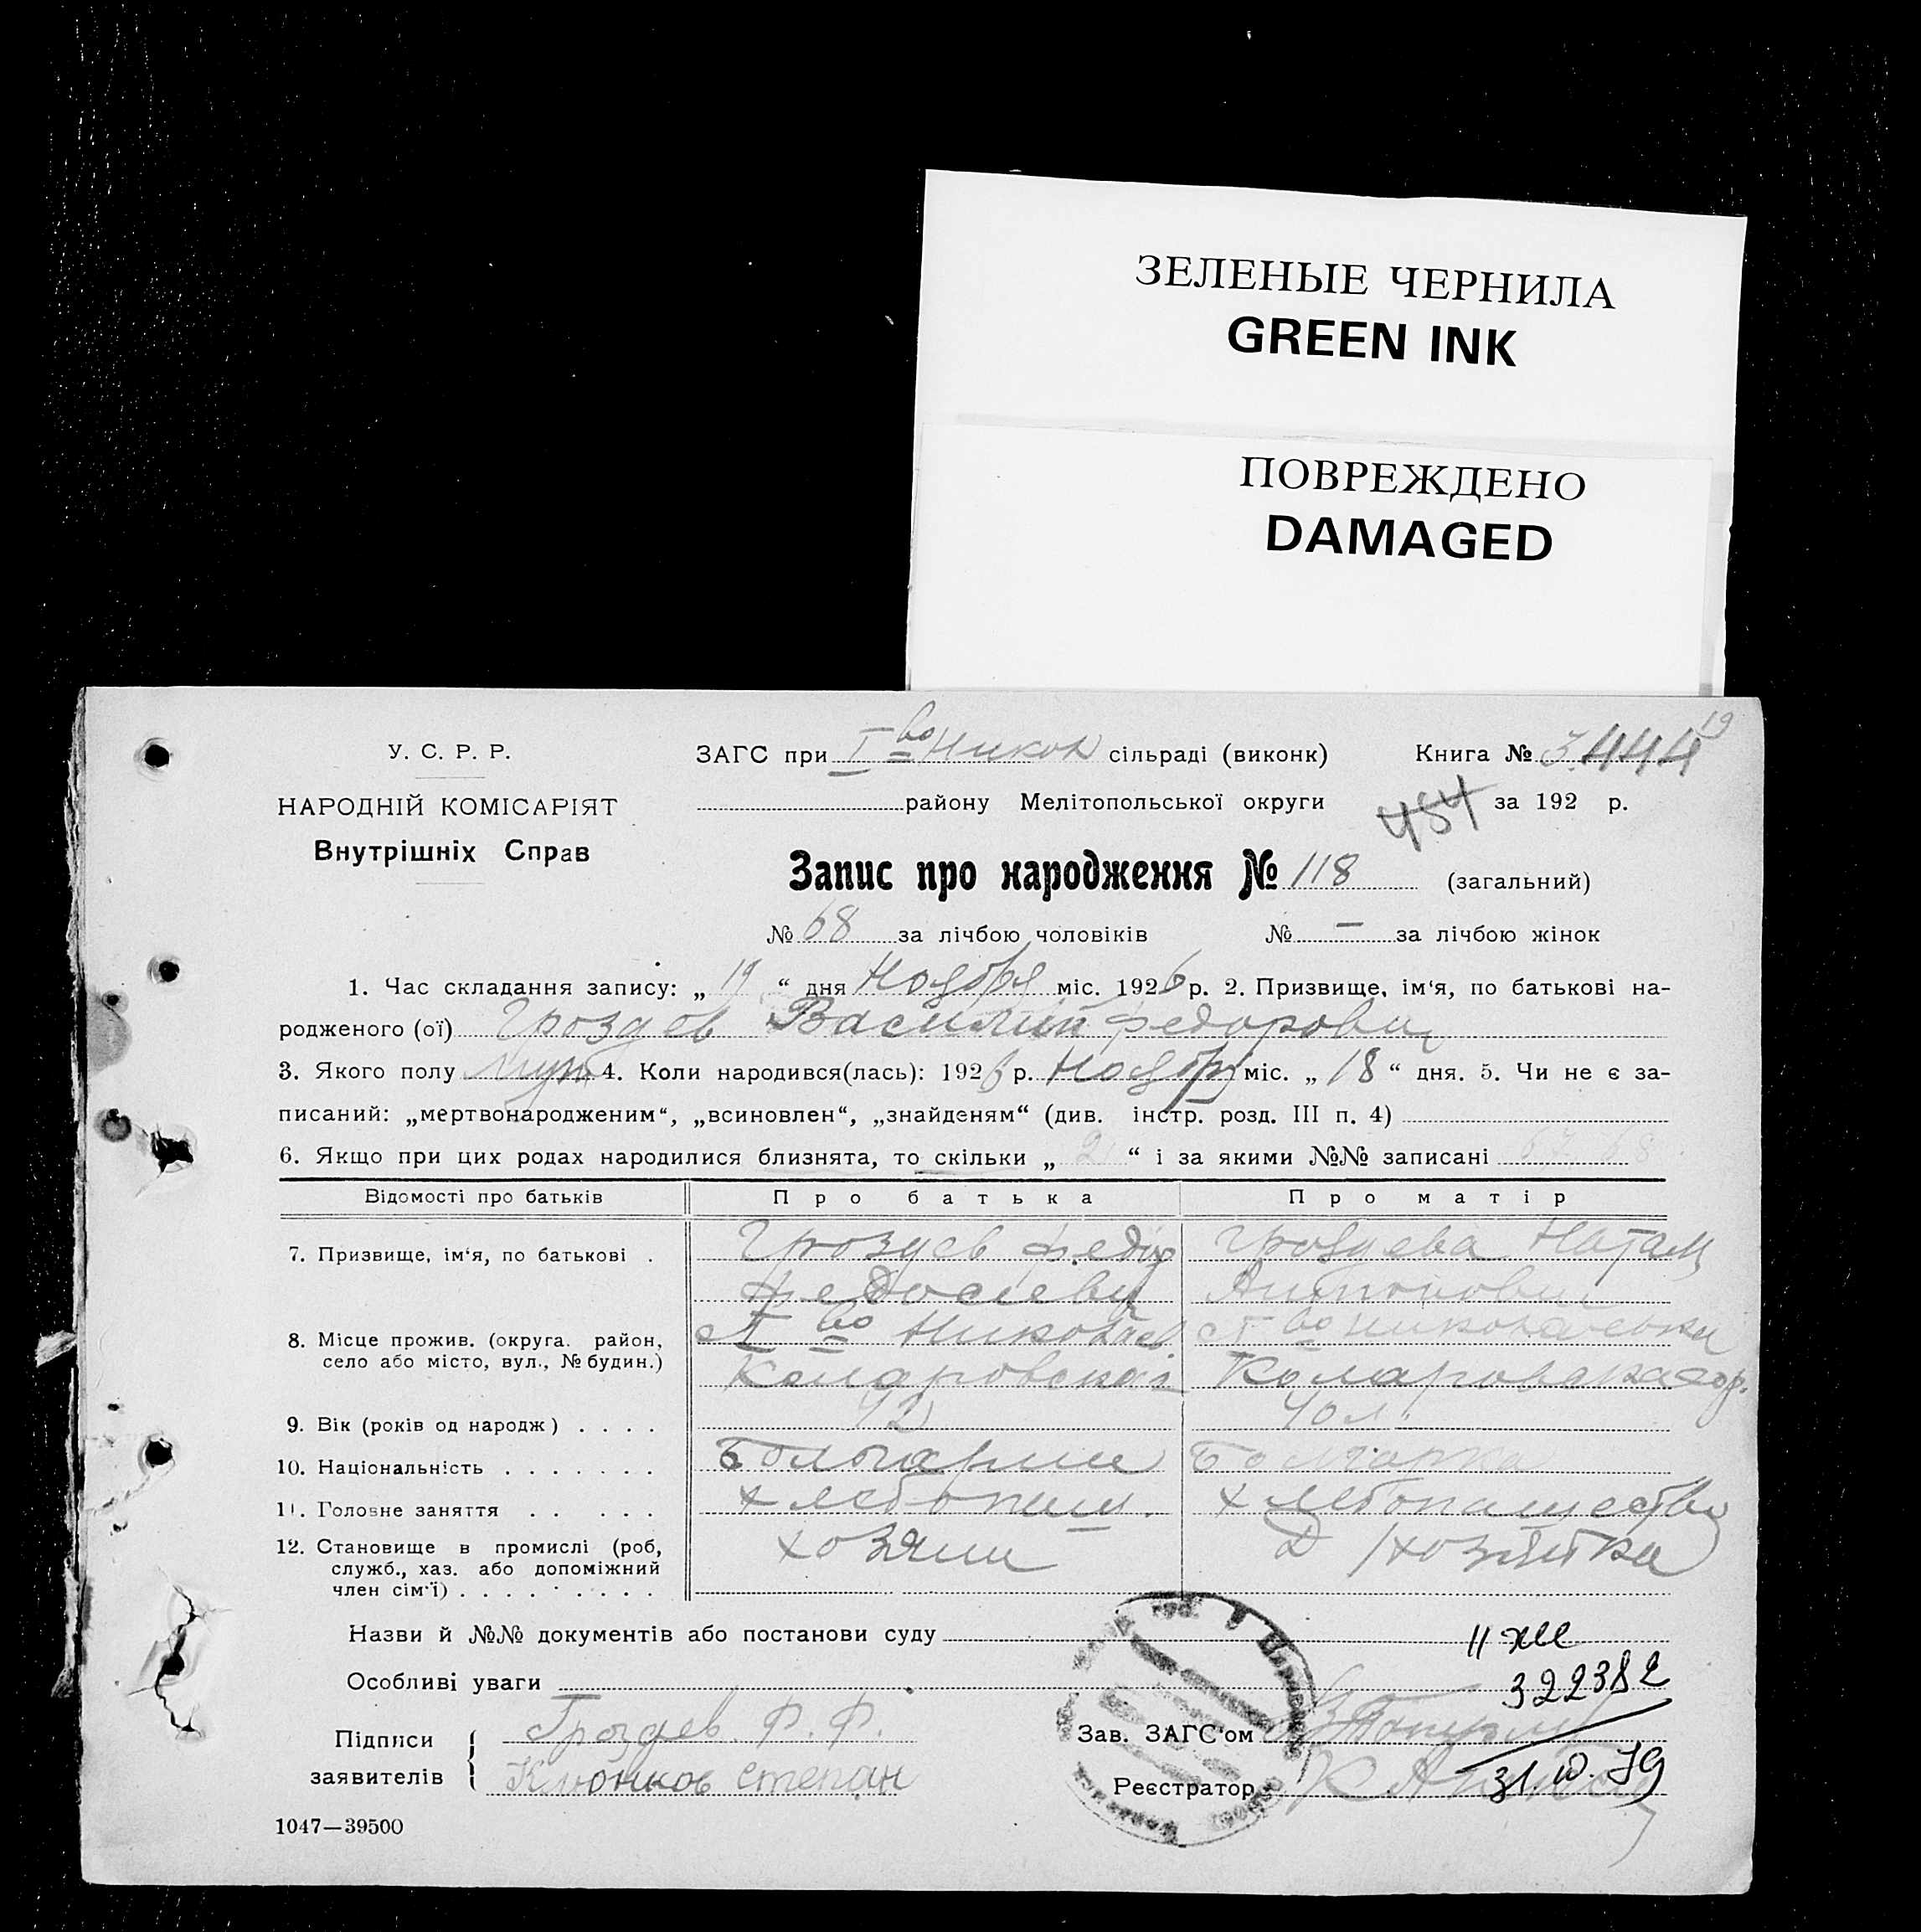 ЗЕЛЕНЫЕ ЧЕРНИЛА
GREEN INK
ПОВРЕЖДЕНО
DAMAGED
19
У. С. Р. Р.
ЗАГС при І во Никол сільраді (виконк) Книга № 3.444
НАРОДНІЙ КОМІСАРІЯТ
района Мелітопольської округи 484 за 192 р.
Внутрішніх Справ
Запис про народження № 118 (загальний)
№ 68 за лічбою чоловіків № — за лічбою жінок
1. Час складання запису: „ 19 “ дня Ноября міс. 1926 р. 2. Призвище, ім‘я, по батькові на-
родженого (ої) Гроздев Василий Федорович
3. Якого полу муж 4. Коли народився(лась): 1926 р. Ноябрь міс. „ 18 “ дня. 5. Чи не є за-
писаний: „мертвонародженим“, „всиновлен“, „знайденям“ (див. інстр. розд. III п. 4)
6. Якщо при цих родах народилися близнята, то скільки „ 2 “ і за якими №№ записані 67 68
Відомості про батьків Про батька Про матір
7. Призвище, ім‘я, по батькові . Гроздев Федор Гроздева Натал
Федосиевич Антоновна
8. Місце прожив. (округа. район, с І во Николаев с І во Николаевка
село або місто, вул., № будин.) Комаровская Комаровская
9. Вік (років од народж) . . . . 42 40 л.
10. Національність . . . . . . . Болгарин Болгарка
11. Головне заняття . . . . . Хлебопаш. Хлебопашество
12. Становище в промислі (роб, хозяин Д/хозяйка
служб., хаз. або допоміжний
член сім‘ї) . . . . . . . . .
Назви й №№ документів або постанови суду
Особливі уваги 322382
Підписи Гроздев Ф. Ф. Зав. ЗАГС‘ом
заявителів Клюнков Степан Реєстратор 79
1047—39500